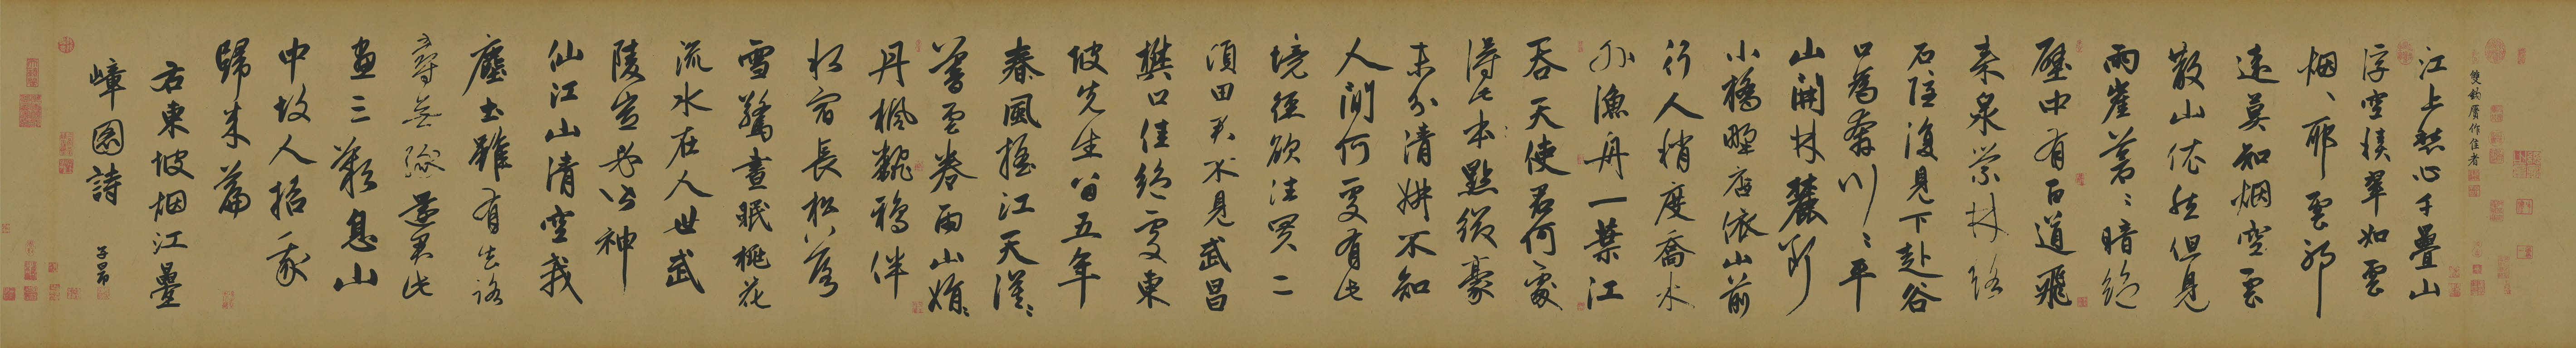 江上愁心千疊山
浮空積翠如雲
烟〻耶雲耶
遠莫知烟空雲
散山依然但見
兩崖蒼〻暗絕
壁中有百道飛
來泉縈林絡
石隱復見下赴谷
口爲奔川〻平
山開林麓斷
小橋野店依山前
行人稍度喬木
外漁舟一葉江
吞天使君何處
得此本點綴豪
末分清妍不知
人間何處有此
境徑欲往買二
頃田君不見武昌
樊口佳絕處東
坡先生留五年
春風搖江天漠〻
暮雲卷雨山娟〻
丹楓翻鴉伴
水宿長松落
雪驚晝眠桃花
流水在人世武
陵豈必皆神
仙江山清空我
塵土雖有去路
尋無緣還君此
畫三歎息山
中故人招我
歸來篇
右東坡烟江疊
嶂圖詩
子昂
雙鈎贋作佳者